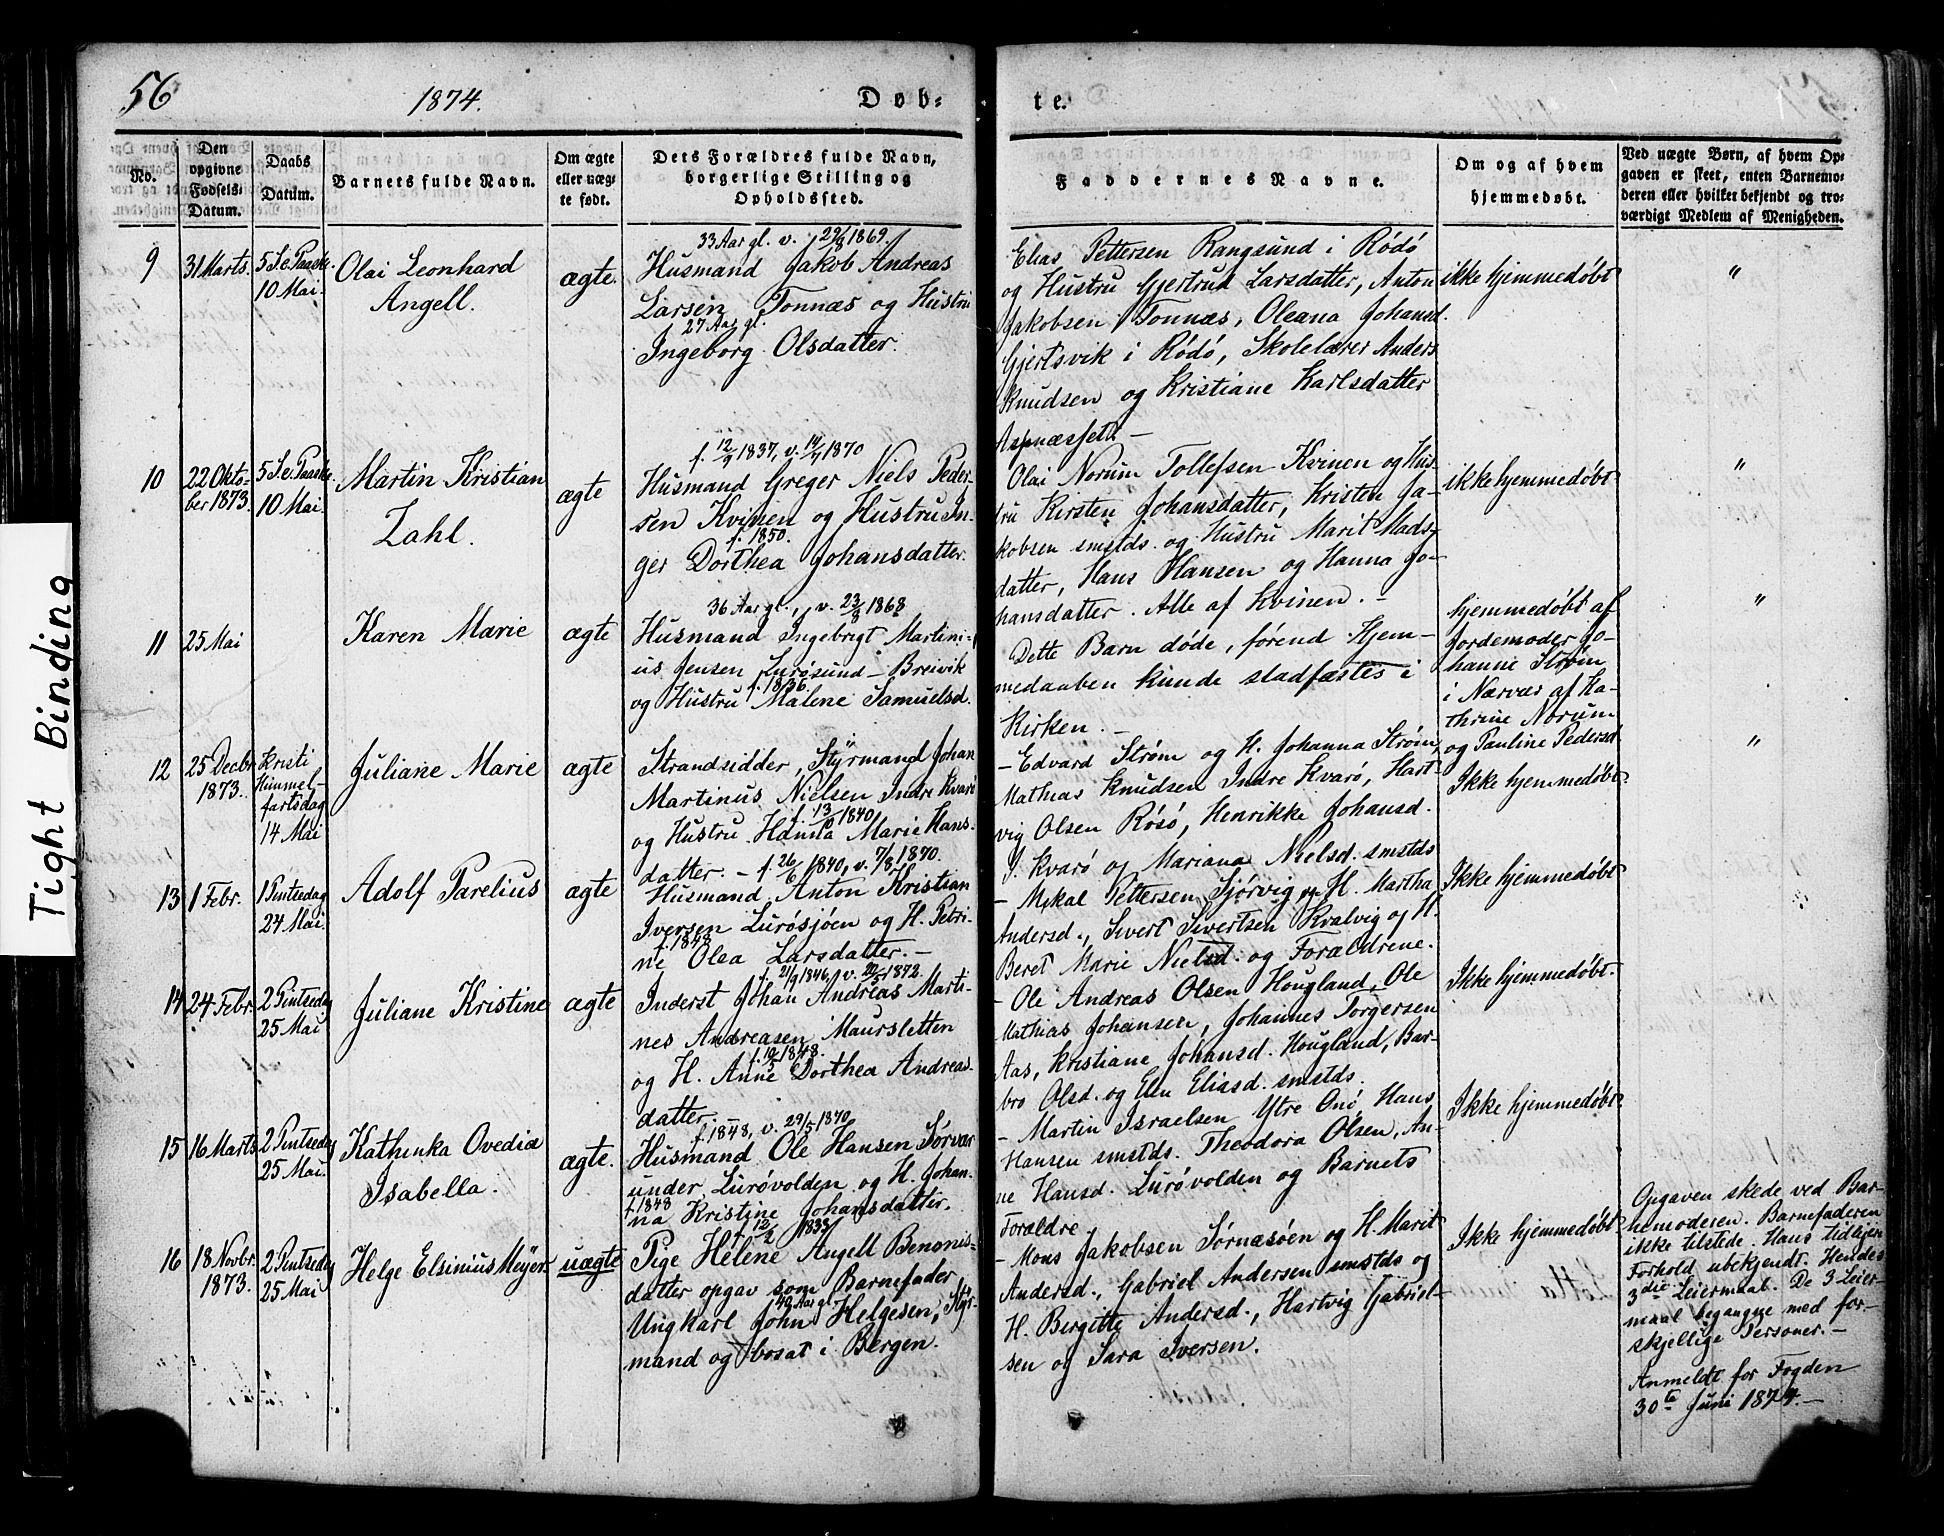 Tight Binding
56
1874.
Døb-
te.
No.
Den opgivne Fødsels-Datum.
Daabs Datum.
Barnets fulde Navn.
Om ægte eller uæg-te født.
Dets Forældres fulde Navn, borgerlige Stilling og Opholdssted.
Faddernes Navne.
Om og af hvem hjemmedøbt.
Ved uægte Børn, af hvem Op-
gaven er skeet, enten Barnemo-
deren eller hvilket bekjendt og tro-
værdigt Medlem af Menigheden.
9
31 Marts.
5 S. e. Paaske.
10 Mai.
Olai Leonhard
Angell.
ægte.
33 Aar gl. v. 29/8 1869.
Husmand Jakob Andreas
Larsen Tonnæs og Hustru
27 Aar gl.
Ingeborg Olsdatter.
Elias Pettersen Rangsund i Rödö
og Hustru Gjertrud Larsdatter, Anton
Jakobsen Tonnæs, Oleana Johansd.
Gjertsvik i Rödö, Skolelærer Anders
Knudsen og Kristiane Karlsdatter
ikke hjemmedøbt
"
10
22 Okto-
ber 1873.
5 S. e. Paaske.
10 Mai.
Martin Kristian
Zahl.
ægte
f. 12/9 1837, v. 14/7 1870
Husmand Greger Niels Peder-
sen Kvinen og Hustru In-
f. 1850.
ger Dorthea Johansdatter.
Olai Norum Tollefsen Kvinen og Hus-
tru Kirsten Johansdatter, Kristen Ja-
kobsen smstds. og Hustru Marit Mads-
datter, Hans Hansen og Hanna Jo-
hansdatter. Alle af Kvinen.-
ikke hjemmedøbt
"
11
25 Mai
Karen Marie
ægte
36 Aar gl., v. 23/8 1868
Husmand Ingebrigt Martini-
us Jensen Lurøsund-Breivik
f. 1836.
og Hustru Malene Samuelsd.
Dette Barn døde, førend Hjem-
medaaben kunde stadfæstes i
Kirken.-
hjemmedøbt af
Jordemoder Jo-
hanne Strøm
i Nærvær af Ka-
thrine Norum
og Pauline Pedersd.
"
12
25 Decbr.
1873.
Kristi
Himmel-
fartsdag
14 Mai
Juliane Marie
ægte
Strandsidder, Styrmand Johan
Martinus Nielsen Indre Kvarø
f. 13/10 1840
og Hustru Hanna Marie Hans-
datter.-
- Edvard Strøm og H. Johanna Strøm,
Mathias Knudsen Indre Kvarø, Hart-
vig Olsen Røsø, Henrikke Johansd.
I. Kvarø og Mariana Nielsd. smstds
Ikke hjemmedøbt.
"
13
1 Febr.
1 Pintsedag
24 Mai.
Adolf Parelius
ægte
f. 26/6 1840, v. 7/8 1870.
Husmand Anton Kristian
Iversen Lurøsjøen og H. Petri-
f. 1848
ne Olea Larsdatter.-
- Mikal Pettersen Sjørvig og H. Martha
Andersd., Sivert Sivertsen Kvalvig og H.
Beret Marie Nielsd. og Forældrene.
Ikke hjemmedøbt
14
24 Febr.
2 Pintsedag
25 Mai
Juliane Kristine
ægte
f. 21/9 1846, v. 22/5 1872.
Inderst Johan Andreas Marti-
nes Andreasen Maursletten
f. 10/5 1848.
og H. Anne Dorthea Andreas-
datter.-
- Ole Andreas Olsen Hougland, Ole
Mathias Johansen, Johannes Torgersen
Aas, Kristiane Johansd. Hougland, Bar-
bro Olsd. og Elen Eliasd. smstds.
Ikke hjemmedøbt.
15
16 Marts
2 Pintsedag
25 Mai.
Kathinka Ovedia
Isabella.
ægte.
f. 1848, v. 29/5 1870
Husmand Ole Hansen Sørvar
under Lurøvolden og H. Johan-
f. 1848
na Kristine Johansdatter.
- Martin Israelsen Ytre Onö, Hans
Hansen smstds. Theodora Olsen, An-
ne Hansd. Lurøvolden og Barnets
Forældre
Ikke hjemmedøbt.
16
18 Novbr.
1873.
2 Pintsedag
25 Mai
Helge Elsinius Meyer
uægte
f. 12/2 1833
Pige Helene Angell Benonis-
datter opgav som Barnefader
40 Aar gl.
Ungkarl John Helgesen, Styr-
mand og bosat i Bergen.
- Mons Jakobsen Sørnæsøen og H. Marit
Andersd., Gabriel Andersen smstds og
H. Bergitte Andersd., Hartvig Gabriel-
sen og Sara Iversen.
Ikke hjemmedøbt
Opgaven skede ved Bar-
nemoderen. Barnefaderen
ikke tilstede. Hans tidligere
Forhold ubekjendt. Hendes
3die Leiermaal. De 3 Leier-
maal begangne med for-
skjellige Personer.-
Anmeldt for Fogden
30te Juni 1874.-